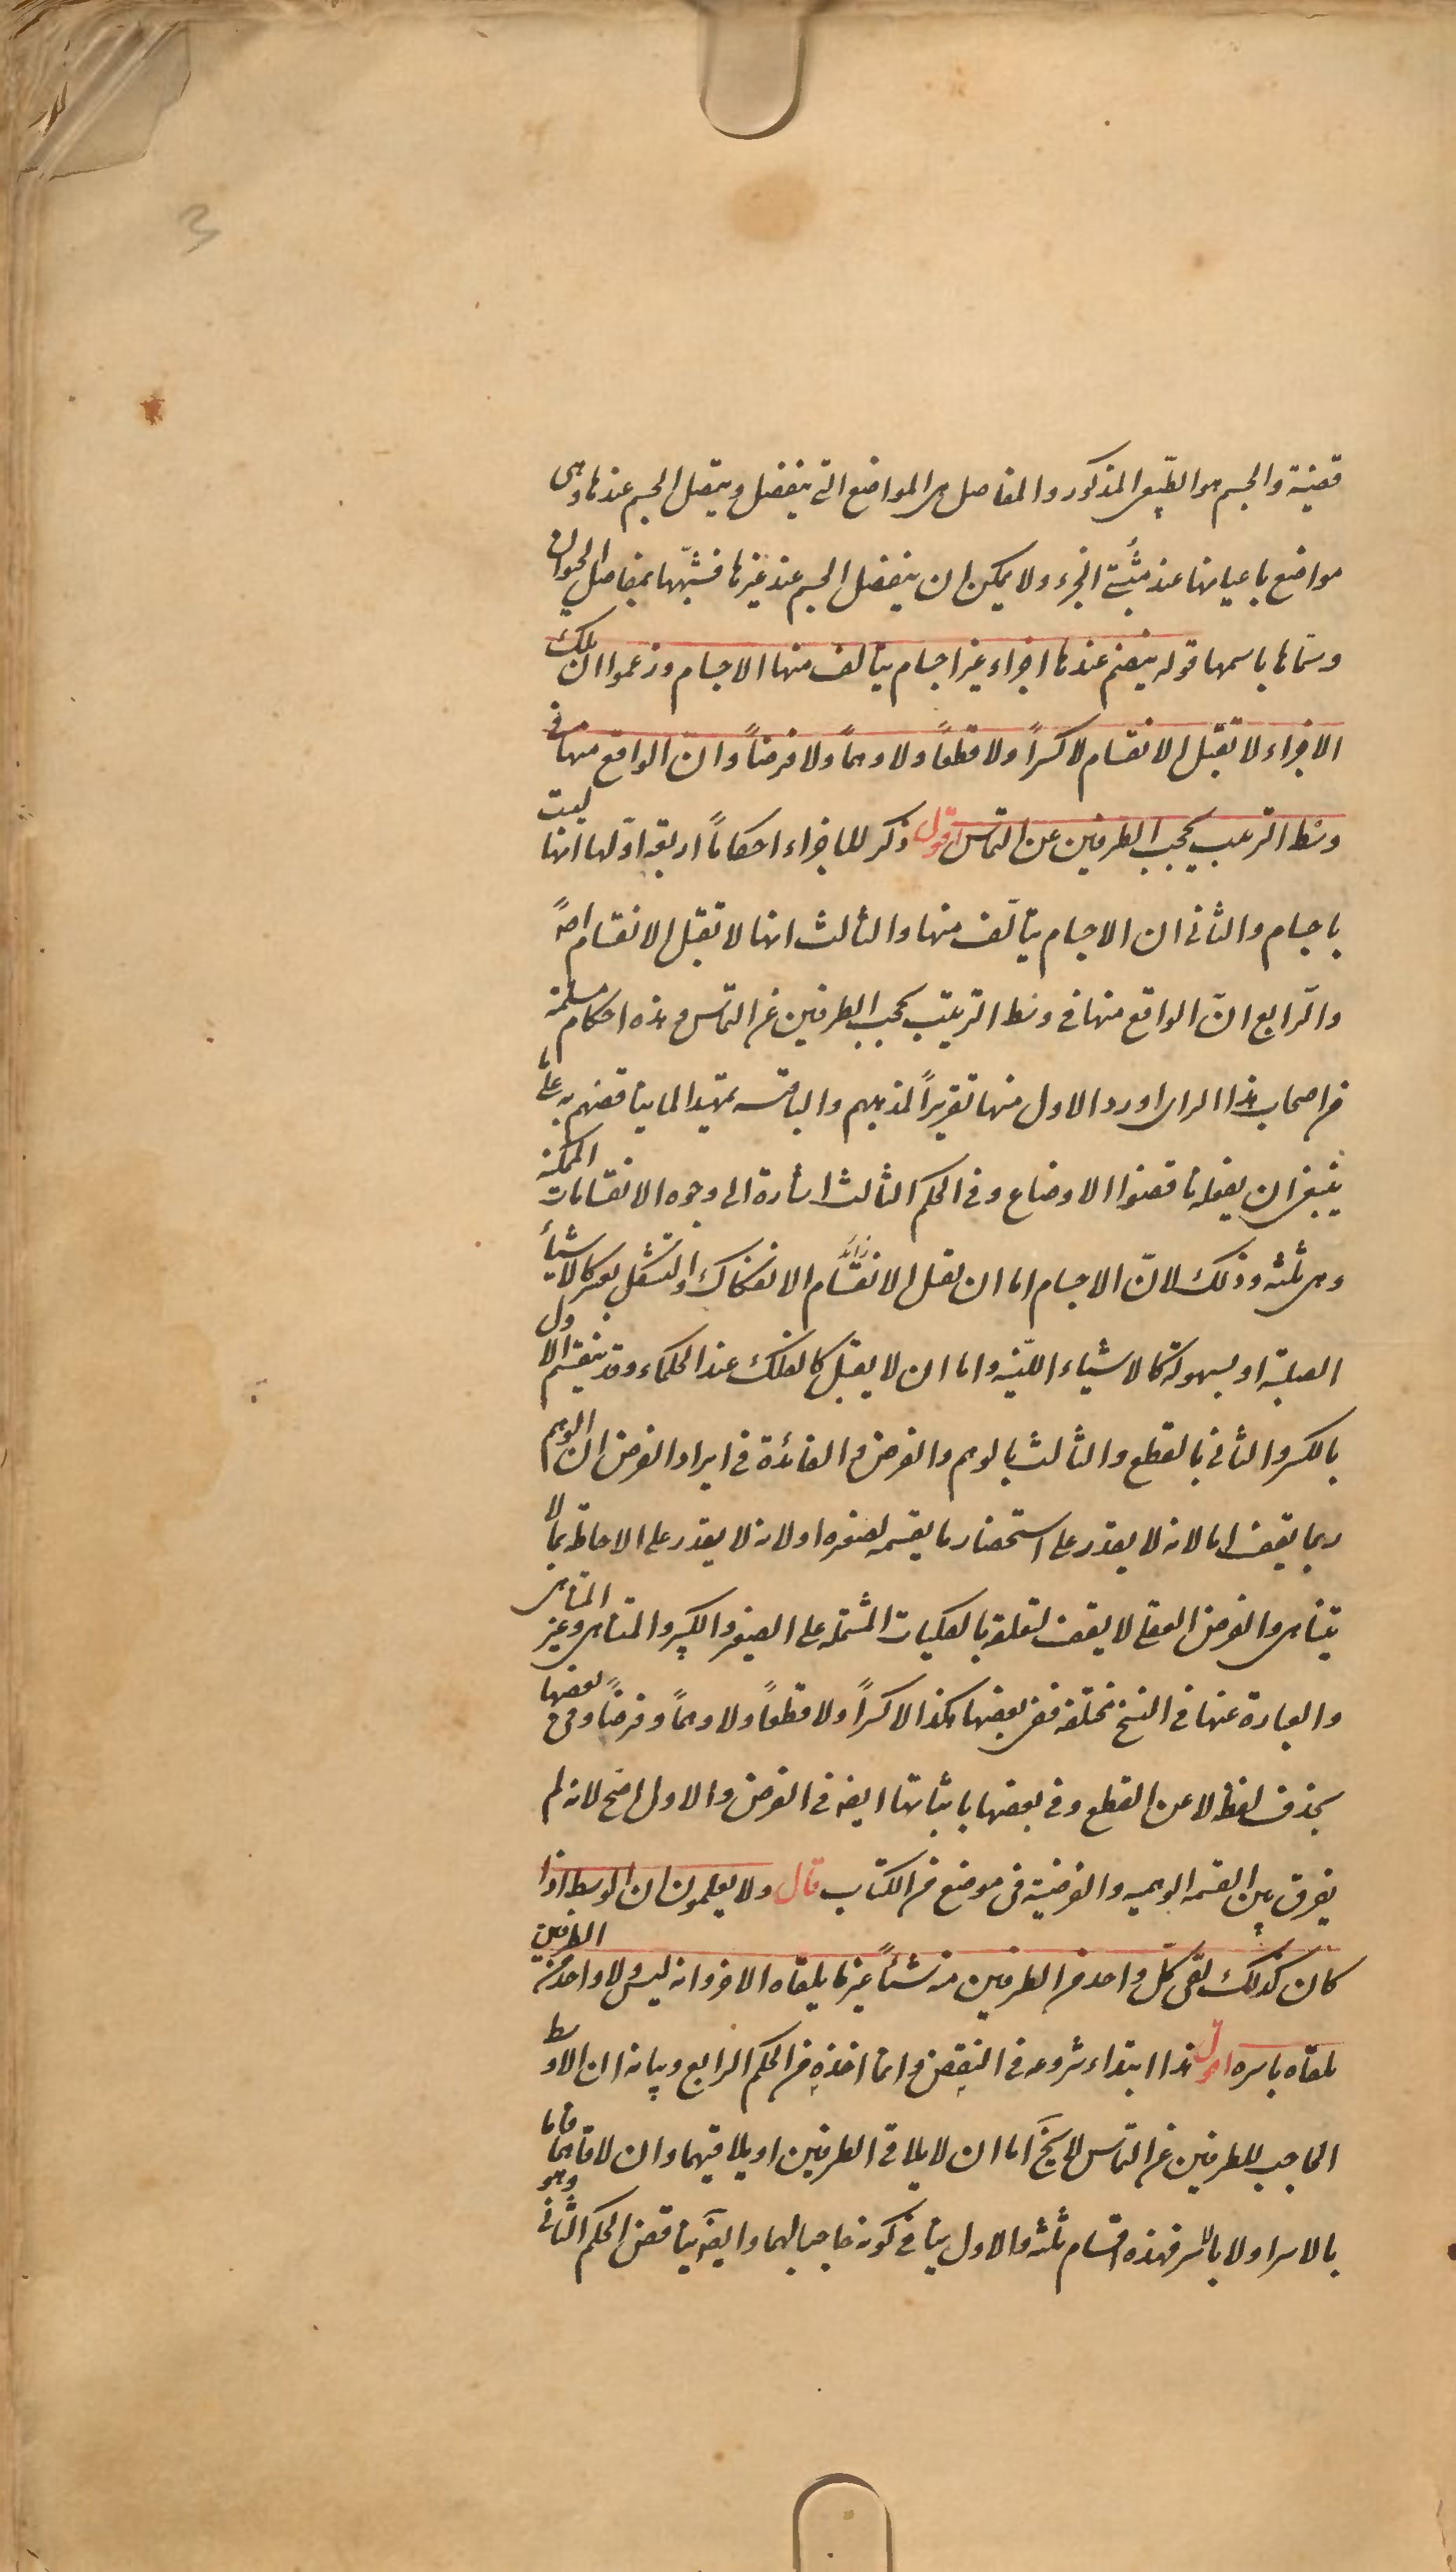 3
قضية والجسم هو الطبيعى المذكور والمفاصل هى المواضع التى ينفصل ويتصل الجسم عندها وهى
مواضع باعيانها عند مثبتى الجزء ولا يمكن ان ينفصل الجسم عند غيرها فشبّهها بمفاصل الحيوان
وسمّاها باسمها قوله ينضم عندها اجزاء غير اجسام يتألف منها الاجسام وزعموا ان تلك
الاجزاء لا تقبل الانقسام لا كسراً ولا قطعاً ولا وهماً ولا فرضاً وان الواقع منها فى
وسط الترتيب يحجب الطرفين عن التماس اقول ذكر للاجزاء احكاماً اربعة اوّلها انها ليست
باجسام والثانى ان الاجسام يتألّف منها والثالث انها لا تقبل الانقسام اصلاً
والرّابع انّ الواقع منها فى وسط الترتيب يحجب الطرفين عن التماس وهذه احكام مسلمة
من اصحاب هذا الراى اورد الاول منها تقريراً لمذهبهم والباقية تمهيدا لما يناقضهم به على
ينبغى ان يفعله ناقضوا الاوضاع وفى الحكم الثالث اشارة الى وجوه الانقسامات الممكنة
وهى ثلثة وذلك لانّ الاجسام اما ان تقبل الانقسام الانفكاك والتشكل بعسر كالاشياء
الصلبة او بسهولة كالاشياء الليّنة واما ان لا يقبل كالفلك عند الحكماء وقد ينقسم الاول
بالكسر والثانى بالقطع والثالث بالوهم والفرض والفائدة فى ايراد الفرض ان الوهم
ربما يقف اما لانه لا يقدر على استحضار ما يقسمه لصغره او لانه لا يقدر على الاحاطة بما لا
يتناهى والفرض العقلى لا يقف لتعلقه بالكليات المشتملة على الصغير والكبير والمتناهى وغير المتناهى
والعبارة عنها فى النسخ مختلفة ففى بعضها هكذا لا كسراً ولا قطعاً ولا وهماً وفرضاً وفى بعضها
بحذف لفظة لا عن القطع وفى بعضها باثباتها ايضا فى الفرض والاول اصح لانه لم
يفرق بين القسمة الوهمية والفرضية فى موضع من الكتاب قال ولا يعلمون ان الوسط اذا
كان كذلك لقى كل واحد من الطرفين منه شيئاً غير ما يلقاه الاخر وانه ليس ولا واحد من الطرفين
يلقاه باسره اقول هذا ابتداء شروعه فى النقض وانما اخذه من الحكم الرابع وبيانه ان الاوسط
الحاجب للطرفين عن التماس لا يخ اما ان لا يلاقى الطرفين او يلاقيهما وان لاقاهما فاما
بالاسر او لا بالاسر فهذه اقسام ثلثة والاول ينافى كونه حاجبا لهما وايضا يناقض الحكم الثانى وهو